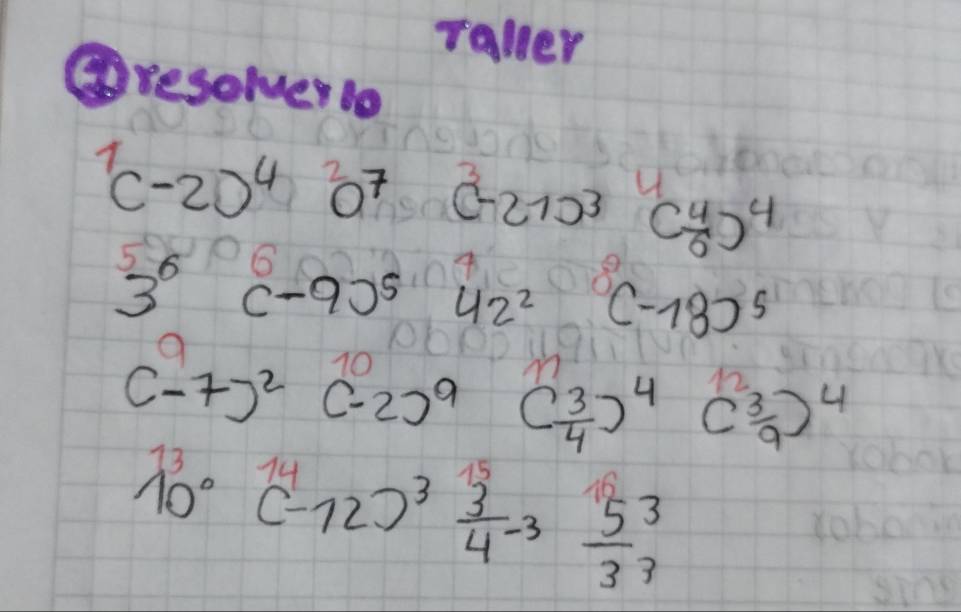 Taller
① resolverlo
1 (-2)⁴ 2 0⁷ 3 (-21)³ 4 (4/6)⁴
5 3⁶ 6 (-9)⁵ 7 42² 8 (-18)⁵
9 (-7)² 10 (-2)⁹ 11 (3/4)⁴ 12 (3/9)⁴
13 10⁰ 14 (-12)³ 15 3/4⁻³ 16 5³/3³